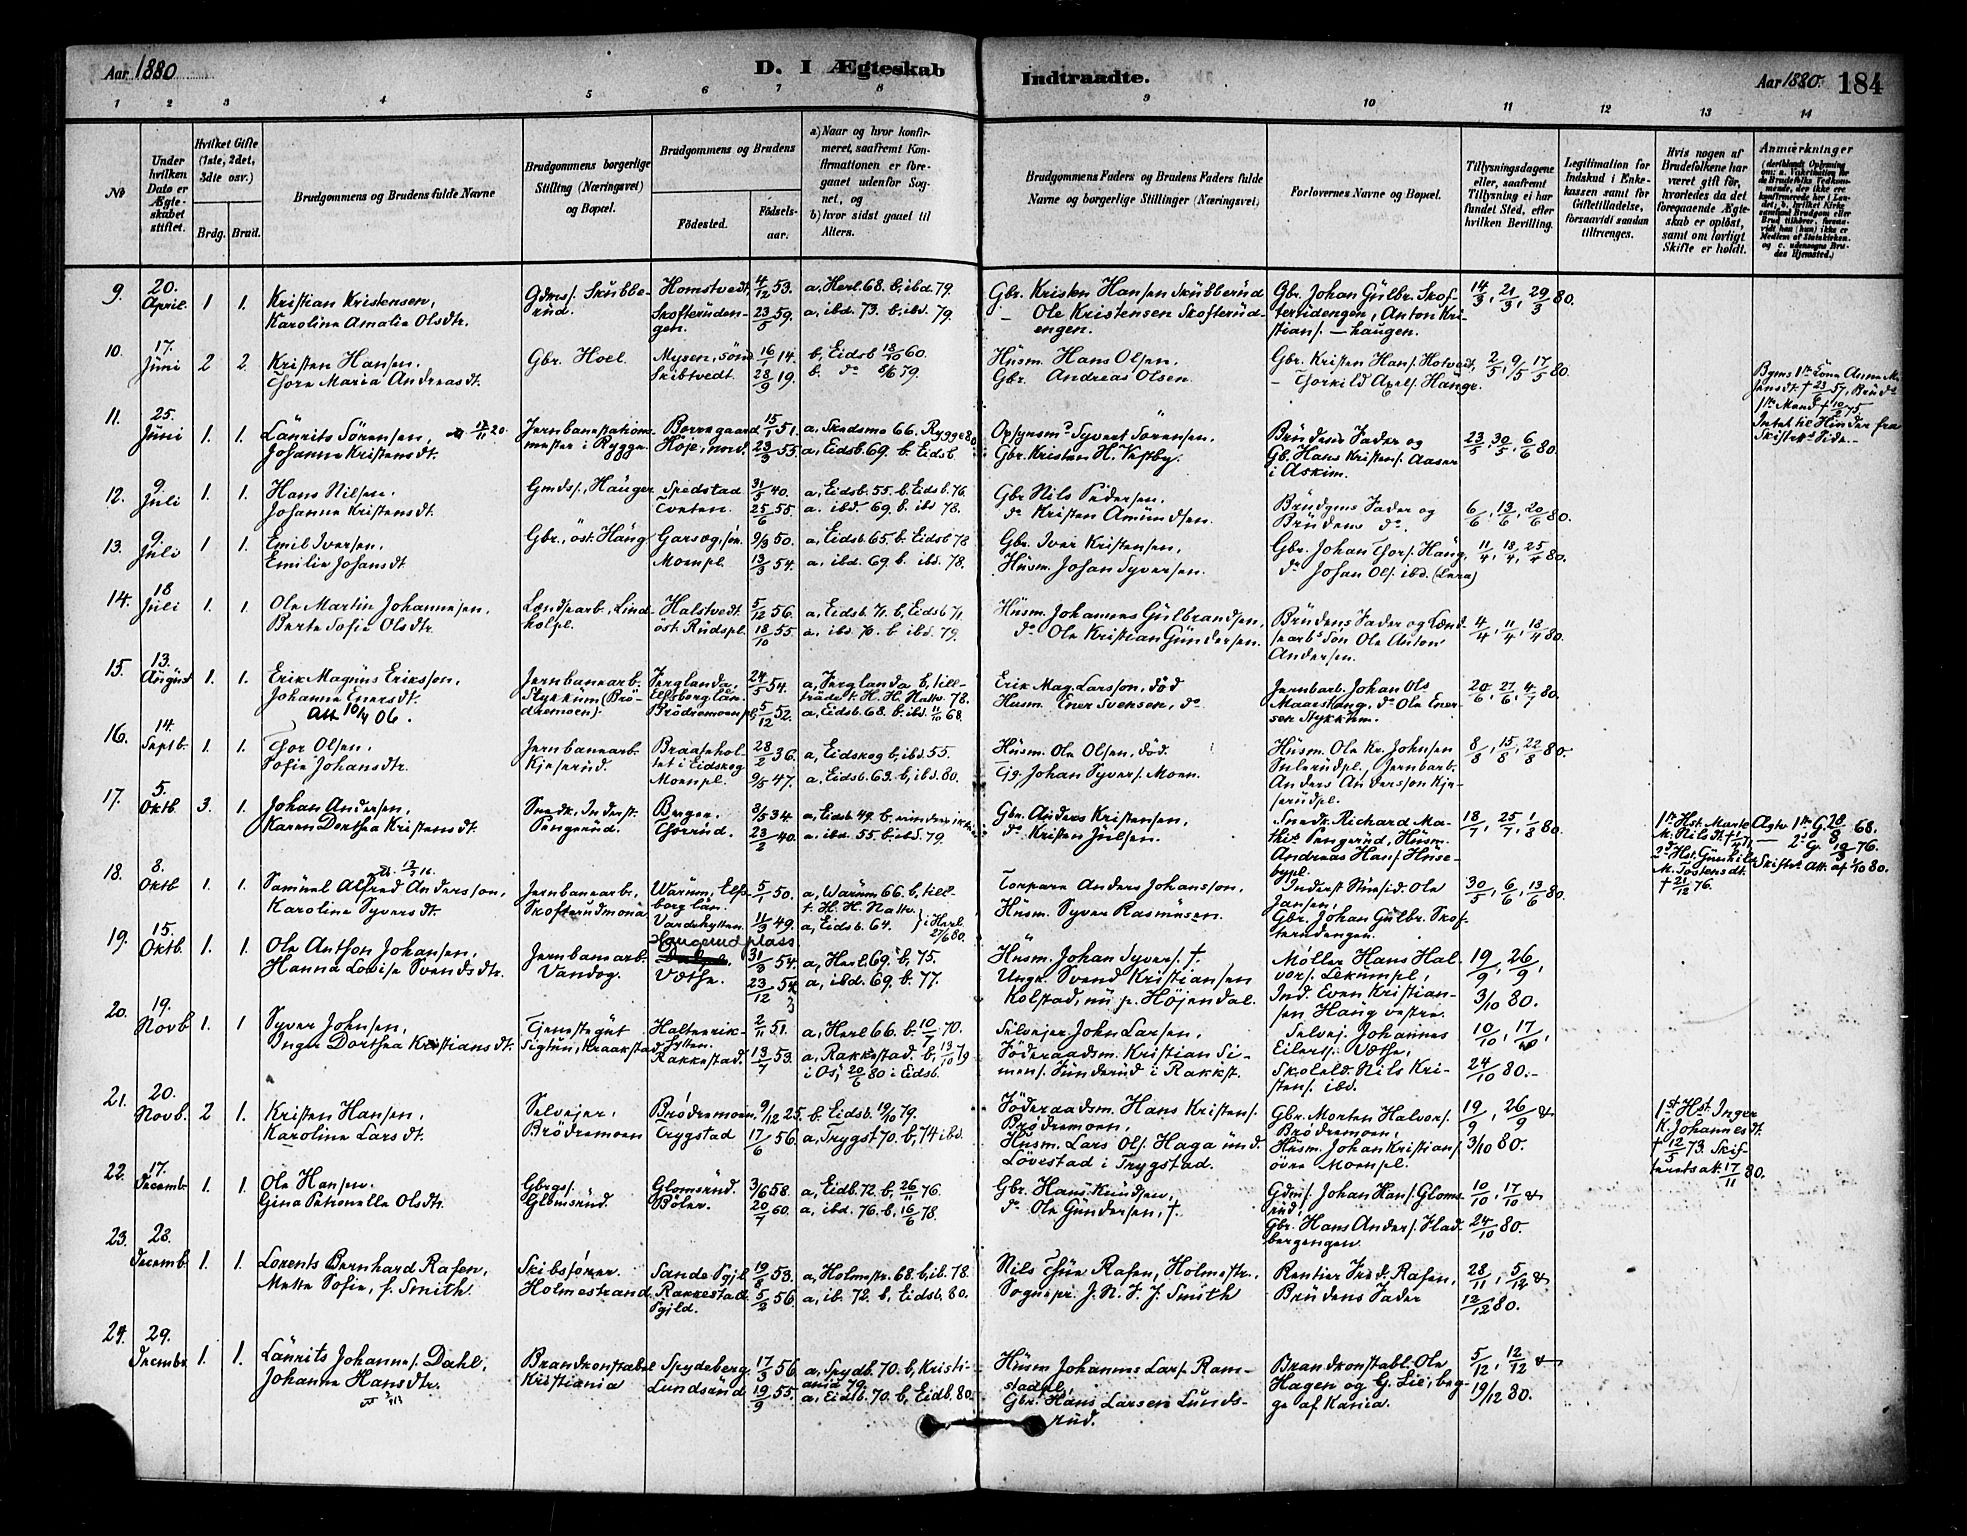 Aar 1880
D. I Ægteskab
Indtraadte.
Aar 1880. 184
1 2 3 4 5 6 7 8 9 10 11 12 13 14
No
Under hvilken Dato er Ægteskabet stiftet.
Hvilket Gifte (1ste, 2det, 3die osv.)
Brdg. Brud.
Brudgommens og Brudens fulde Navne
Brudgommens borgerlige Stilling (Næringsvei) og Bopæl.
Brudgommens og Brudens
Födested.
Födselsaar.
a) Naar og hvor konfirmeret, saafremt Konfirmationen er foregaaet udenfor Sognet, og
b) hvor sidst gaaet til Alters.
Brudgommens Faders og Brudens Faders fulde Navne og borgerlige Stillinger (Næringsvei)
Forlovernes Navne og Bopæl.
Tillysningsdagene eller, saafremt Tillysning ei har fundet Sted, efter hvilken Bevilling.
Legitimation for Indskud i Enkekassen samt for Giftetilladelse, forsaavidt saadan tiltrænges.
Hvis nogen af Brudefolkene har været gift för, hvorledes da det foregaaende Ægteskab er oplöst, samt om lovligt Skifte er holdt.
Anmærkninger
9. 20. April. 1 1. Kristian Kristensen,
Karoline Amalie Olsdtr.
Gdms. Skubberud.
Homstvedt, 4/12 53. a, Herl. 68. b, ibd. 79.
Skofterudengen. 23/5 59. a, ibd. 73. b, ibd. 79.
Gbr. Kristen Hansen Skubberud
— Ole Kristensen Skofterudengen.
Gbr. Johan Gulbr. Skofterudengen, Anton Kristians. — haugen.
14/3, 21/3, 29/3 80.
10. 17. Juni 2 2. Kristen Hansen.
Thore Maria Andreasdt.
Gbr. Hoel.
Mysen, sönd 16/1 14. b, Eidsb 18/10 60.
Skibtvedt. 28/9 19. b. do 8/6 79.
Husm. Hans Olsen.
Gbr. Andreas Olsen.
Gbr. Kristen Hans. Hotvedt,
— Thorkild Axels. Haugr.
2/5, 9/5, 17/5 80.
11. 25. Juni 1. 1. Laurits Sörensen, 20.
Johanne Kristensdt.
Jernbanestationsmester i Rygge.
Borregaard 15/1 51. a, Skedsmo 66. Rygge 80.
Höie, nord. 23/3 55. a, Eidsb. 69. b. Eidsb.
Opsynsm. Syvert Sörensen.
Gbr. Kristen H. Vestby.
Brudens Fader og
Gb. Hans Kristens. Aaser
i Askim.
23/5, 30/5, 6/6 80.
12. 9. Juli 1. 1. Hans Nilsen.
Johanne Kristensdt.
Gmds., Hauger
Spedstad 31/5 40. a, Eidsb. 55. b. Eidsb. 76.
Tveten. 25/6 55. a. ibd 69. b. ibd 78.
Gbr Nils Pedersen.
do Kristen Amundsen.
Brudgms Fader og
Brudens do.
6/6, 13/6, 20/6 80.
13. 9. Juli 1 1. Emil Iversen.
Emilie Johansdt.
Gbr., öst. Haug
9/3 50. a, Eidsb. 65. b. Eidsb 78
Moenpl. 13/3 54. a. ibd. 69. b. ibd. 78.
Gbr. Iver Kristensen,
Husm. Johan Syversen.
Gbr. Johan Thors. Haug,
do Johan Ols. ibd.
11/4, 18/4, 25/4 80.
14. 18 Juli 1. 1. Ole Martin Johannesen.
Berte Sofie Olsdtr.
Landsarb., Lindholpl.
Halstvedt 5/12 56. a, Eidsb. 71. b, Eidsb 71.
öst. Rudspl. 18/10 55. a. ibd. 70. b. ibd. 79.
Husm. Johannes Gulbrandsen,
do Ole Kristian Gundersen.
Brudens Fader og
Sön Ole Anton Andersen.
4/4, 11/4, 18/4 80.
15. 13. August 1. 1. Erik Magnus Eriksson,
Johanne Enersdt.
Att 10/4 06.
Jernbanearb. Stykkum (Brödremoen).
Jerglanda, Elfsborg län 24/5 54. a, Jerglanda b, till-
Brödremoenpl 5/12 52. a, Eidsb. 68. b. ibd. 11/10 68.
Erik Mag. Larsson, död
Husm. Ener Svensen, do
Jernbarb. Johan Ols
do Ole Enersen Stykkum.
20/6, 27/6, 4/7 80.
16. 14. Septb. 1. 1. Thor Olsen.
Sofie Johansdtr.
Jernbanearb. Kjeserud.
Braateholtet i Eidskog 28/2 36. a, Eidskog b, ibd. 55.
Moenpl. 9/5 47. a, Eidsb. 63. b, ibd. 80.
Husm. Ole Olsen, död.
Johan Syvers. Moen.
Husm. Ole Kr. Johnsen
Sulerudpl., Jernbarb.
Anders Andersson Kjeserudpl.
8/8, 15/8, 22/8 80.
17. 5. Oktb. 3. 1. Johan Andersen.
Karen Dorthea Kristensdt.
Snedk. Inderst Pengerud.
Berger. 8/5 34. a, Eidsb 49. b. erindrer ikke
Thorrud. 23/2 40. a. ibd. 55. b. ibd. 79.
Gbr. Anders Kristensen,
do. Kristen Juelsen.
Snedk. Richard Mathis. Pengerud, Husm.
Andreas Hans. Husebypl.
18/7, 25/7, 1/8 80.
1ste Hst. Marte M. Nilsdt.
2den Hst. Gunhild M. Tostensdt. † 21/12 76.
Agtv. 1ste G. 28/8 68.
— 2d G. 76.
Skiftet att. af 1/10 80.
18. 8. Oktb 1. 1. Samuel Alfred Andersson,
Karoline Syversdt.
Jernbanearb. Skofterudmona
Warum, Elfsborg län. 5/1 50. a, Warum 66. b, till. t. H. H. Nattv.
Vardehytten. 11/3 49. a, Eidsb. 64. } i Herl. 27/6 80.
Torpare Anders Johansson,
Husm. Syver Rasmusen.
Ole Jansen,
Gbr. Johan Gulbr. Skofterudengen.
30/5, 6/6, 13/6 80.
19. 15. Oktb. 1. 1. Ole Anthon Johansen,
Hanna Lovise Svendsdtr.
Jernbanearb. Vandog.
Haugerud plass 31/3 54. a, Herl. 69. b, 75.
Væthe. 23/12 54 a, ibd. 69. b. 77.
Husm. Johan Syvers. †.
Ungk. Svend Kristiansen
Kolstad, nu p. Höjendal.
Möller Hans Halvors. Lekumpl.,
Ind. Even Kristiansen Haug vestre.
19/9, 26/9, 3/10 80.
20. 19. Novb. 1. 1 Syver Johnsen,
Inger Dorthea Kristiansdt.
Tjenestegut
2/11 51. a, Herl 66. b. 10/7 70.
Rakkestad. 13/7 53. a, Rakkestad. b, 13/10 79 i Os, 20/6 80 i Eidsb.
Selvejer John Larsen,
Föderaadsm. Kristian Simens. Sunderud i Rakkst.
Selvej. Johannes Eilerts. Væthe,
Skoleld. Nils Kristens. ibd.
10/10, 17/10, 24/10 80.
21. 20. Novb. 2 1. Kristen Hansen.
Karoline Larsdt.
Selvejer. Brödremoen
Brödremoen. 9/12 25. b. Eidsb. 19/10 79.
Trygstad 17/6 56. a, Trygst 70. b, 74 ibd.
Föderaadsm. Hans Kristens. Brödremoen,
Husm. Lars Ols. Haga und. Lövestad i Trygstad.
Gbr. Morten Halvors. Brödremoen,
Husm. Johan Kristians. övre Moenpl.
19/9, 26/9 & 3/10 80.
1st Hst. Inger K. Johannesdt. † 12/5 73. Skifteretsatt. 17/11 80.
22. 17. Decemb. 1. 1. Ole Hansen.
Gina Petronelle Olsdtr.
Gbrgs. Glomsrud.
Glomsrud. 3/6 58. a, Eidb. 72. b, 26/11 76.
Böler. 20/7 60. a, ibd. 76. b, 16/6 78.
Gbr. Hans Knudsen,
do. Ole Gundersen, †.
Gdm. Johan Hans. Glomsrud,
Gbr. Hans Anders. Fladbergengen
10/10, 17/10 & 24/10 80.
23. 28. Decemb. 1. 1. Lorents Bernhard Rafen,
Mette Sofie, f. Smith.
Skibsförer. Holmestrand
Sande Pgjl. 19/8 53. a, Holmestr. 68. b, ib. 78.
Rakkestad Pgjld. 5/2 56. a, ib. 72. b, Eidsb. 80.
Nils Thue Rafen, Holmestr.
Sognepr. J. N. F. J. Smith
Rentier Fred. Rafen,
Brudens Fader
28/11, 5/12 & 12/12 80.
24. 29. Decembr. 1. 1. Laurits Johannes. Dahl.
Johanne Hansdtr.
Brandkonstabel Kristiania
Spydeberg 17/3 56. a, Spydb. 70. b, Kristiania 79.
Lundsrud 19/9 55. a, Eidb. 70. b, Eidb. 80.
Husm Johannes Lars. Ramstadpl,
Gbr. Hans Larsen Lundsrud.
Brandkonstabl. Ole Hagen og G. Lie, begge af Kania.
5/12, 12/12 & 19/12 80.